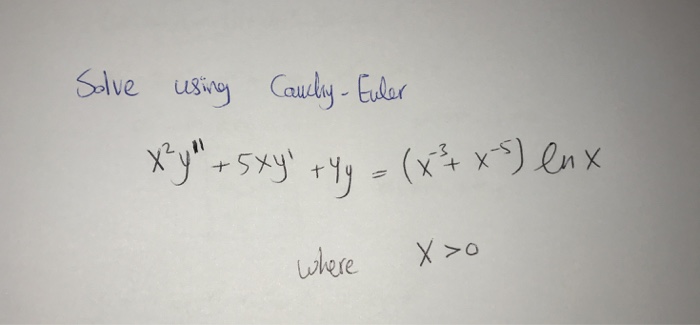 Solve using Cauchy-Euler
x²y" + 5xy' + 4y = (x⁻³ + x⁻⁵) ln x
where x > 0